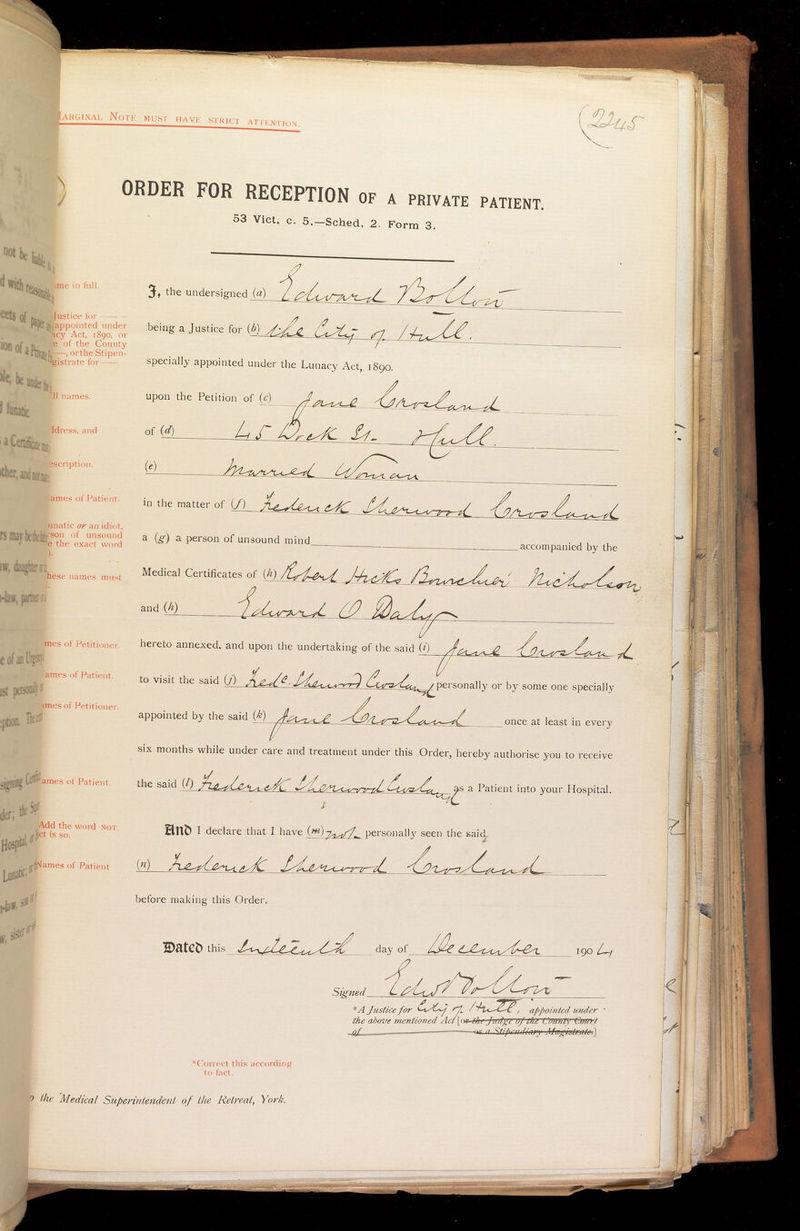 MARGINAL NOTE MUST HAVE STRICT ATTENTION.
2245
ORDER FOR RECEPTION OF A PRIVATE PATIENT.
53 Vict. c. 5.—Sched. 2. Form 3.
I, the undersigned (a) Edward Bolton
being a Justice for (b) the City of Hull.
specially appointed under the Lunacy Act, 1890.
upon the Petition of (c) Jane Crosland
of (d) 45 Dock St. Hull.
(e) Married Woman
in the matter of (f) Frederick Sherwood Crosland
a (g) a person of unsound mind accompanied by the
Medical Certificates of (h) Robert Hicks Bourchier Nicholson
and (h) Edward O Daly
hereto annexed, and upon the undertaking of the said (i) Jane Crosland
to visit the said (j) Fredc. Sherwood Crosland personally or by some one specially
appointed by the said (k) Jane Crosland once at least in every
six months while under care and treatment under this Order, hereby authorise you to receive
the said (l) Frederick Sherwood Crosland as a Patient into your Hospital.
And I declare that I have (m) not personally seen the said
(n) Frederick Sherwood Crosland
before making this Order.
Dated this Sixteenth day of December 1904
Signed Edwd Bolton
*A Justice for City of Hull, appointed under
the above mentioned Act [or the Judge of the County Court
of or a Stipendiary Magistrate.]
*Correct this according
to fact.
the Medical Superintendent of the Retreat, York.
not be liable
d with reasonable
ects of
le, be under
lunatic
a Certificate
ther, and not
rs may be the
w, daughter
-law, partner
e of an Urgency
st personally
ption.
signing
der; the
Hospital
Lunatic,
-law,
sister
me in full.
Justice for
appointed under
cy Act, 1890, or
of the County
—, or the Stipen-
gistrate for
ll names.
ddress, and
escription.
ames of Patient.
unatic or an idiot,
son of unsound
e the exact word
).
hese names must
mes of Petitioner.
ames of Patient.
mes of Petitioner.
ames of Patient.
Add the word NOT
ct is so.
Names of Patient